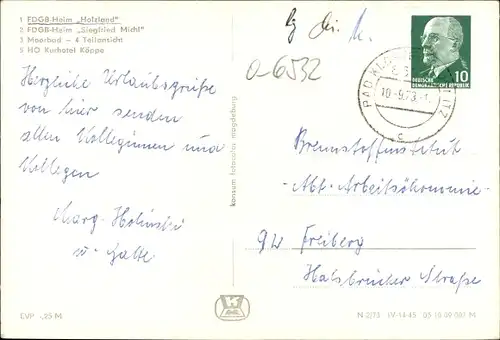 1 FDGB-Heim „Holzland"
2 FDGB-Heim „Siegfried Michl"
3 Moorbad – 4 Teilansicht
5 HO Kurhotel Köppe
o-6532
10
DEUTSCHE
DEMOKRATISCHE REPUBLIK
BAD KLOSTERLAUSNITZ
10-9.73-1
c
Herzliche Urlaubsgrüße
von hier senden
allen Kolleginnen und
Kollegen
Marg. Holinski
u. Gatte
konsum fotocolor magdeburg
Brennstoffinstitut
- Abt. Arbeitsökonomie -
92 Freiberg
Halsbrücker Straße
EVP -,25 M
K
N 2/73 IV-14-45 05 10 09 092 M